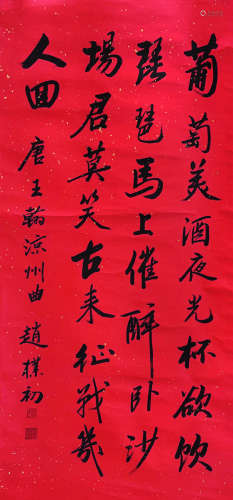 葡萄美酒夜光杯欲饮
琵琶馬上催醉卧沙
場君莫笑古来征战幾
人回
唐王翰涼州曲 趙樸初